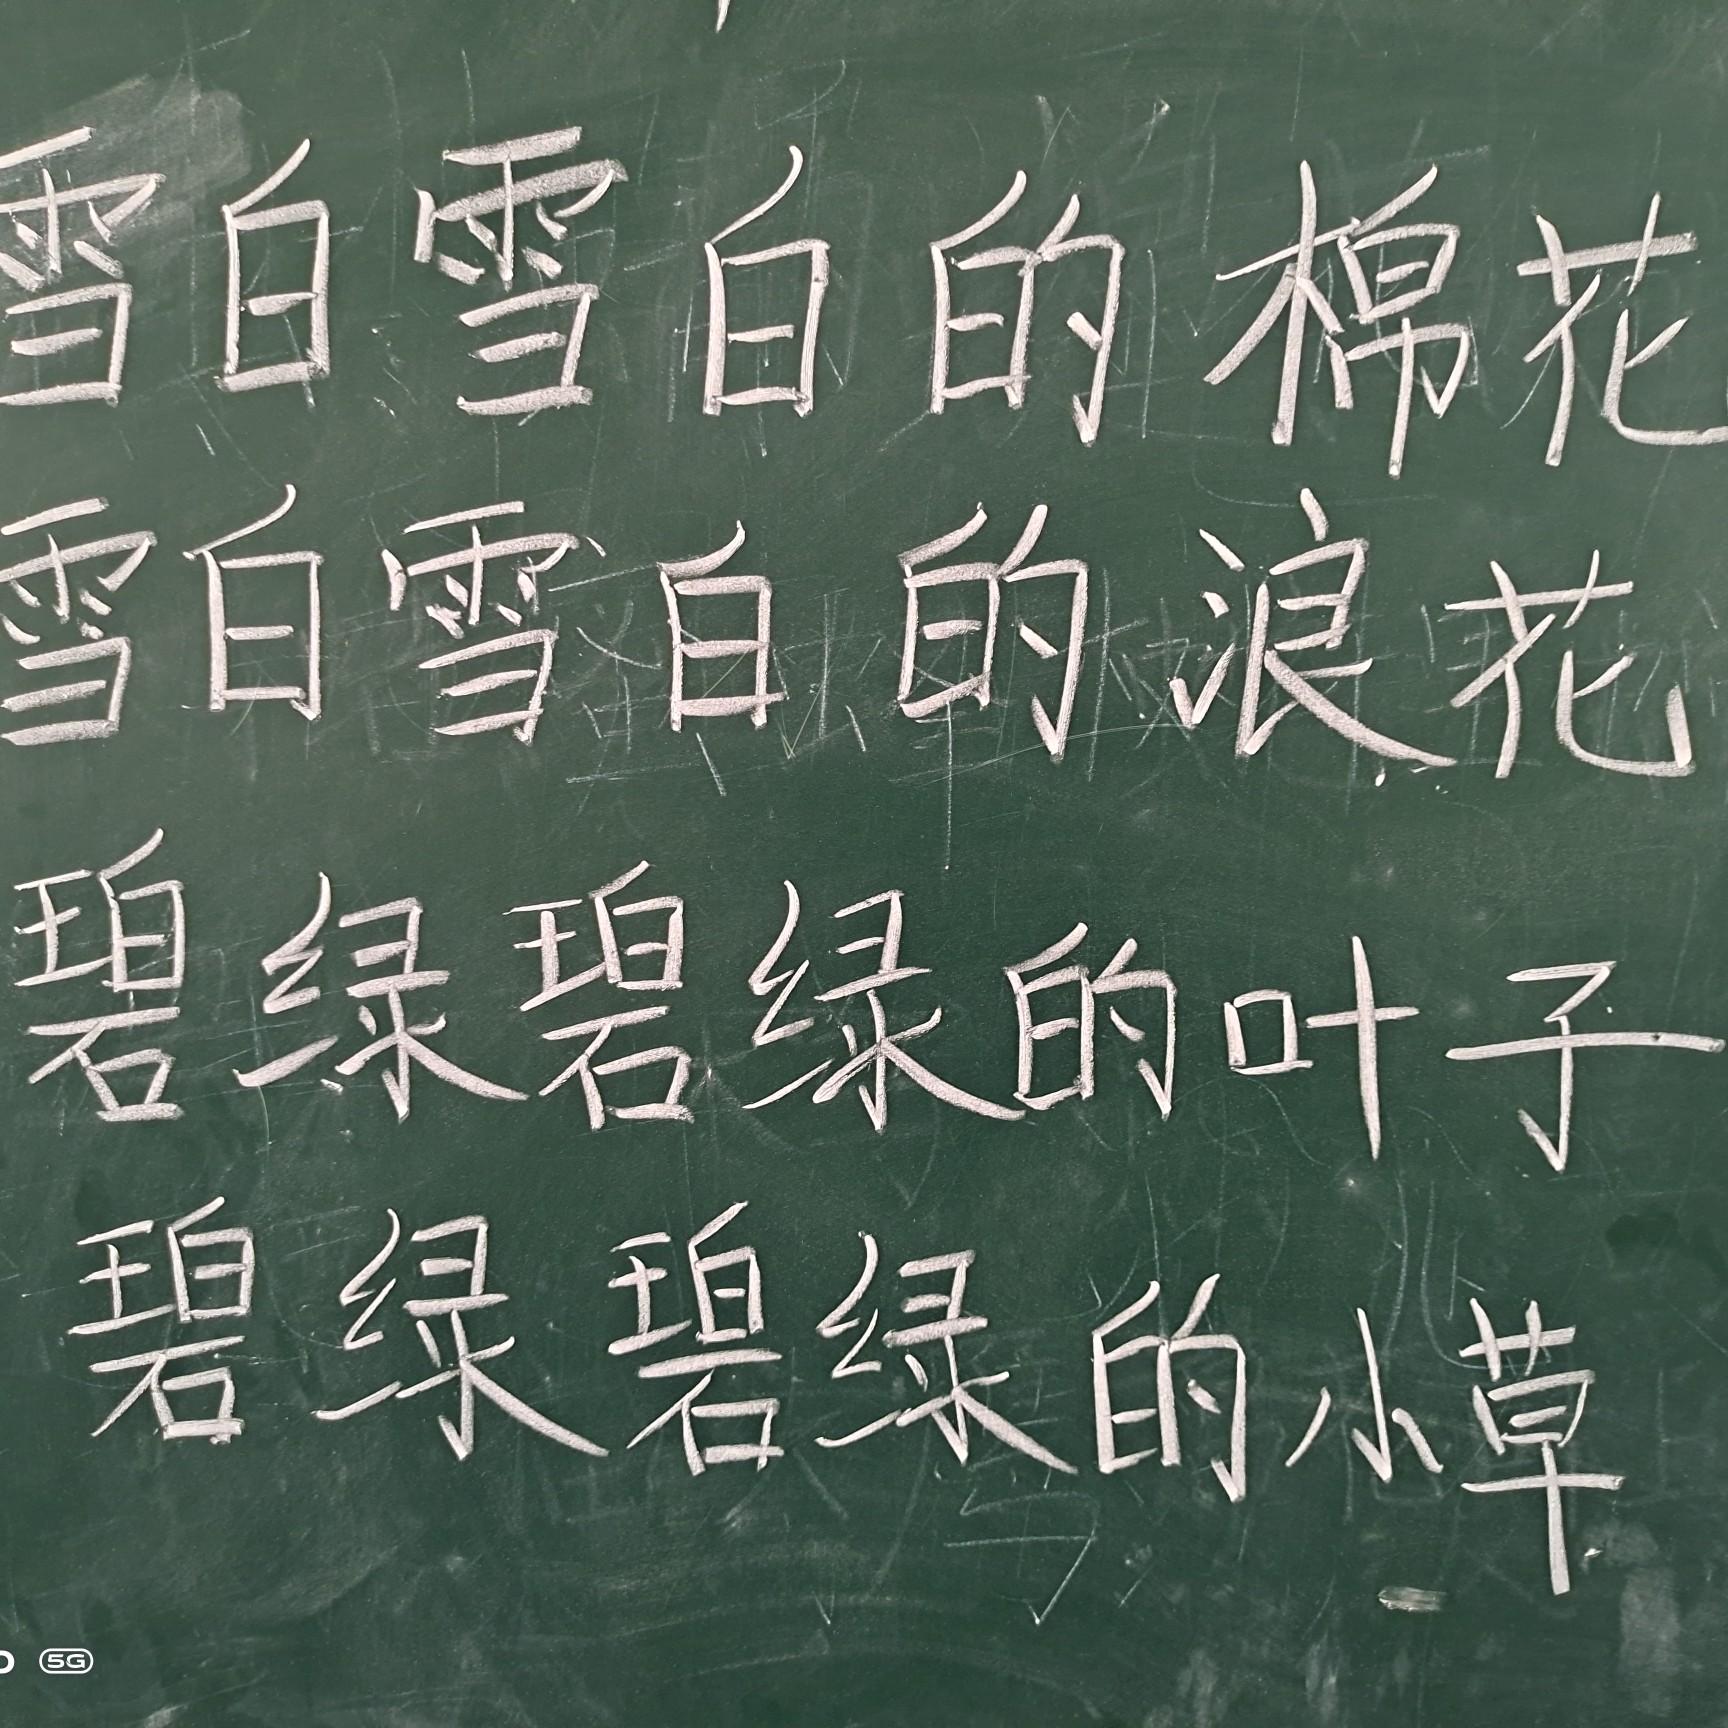 雪白雪白的棉花
雪白雪白的浪花
碧绿碧绿的叶子
碧绿碧绿的小草
5G